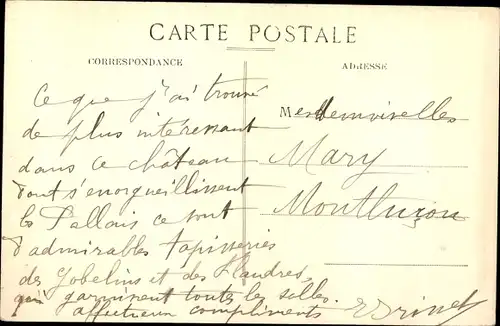 CARTE POSTALE
CORRESPONDANCE
ADRESSE
Ce que j'ai trouvé
de plus intéressant
dans ce château
dont s'enorgueillissent
les Pallais ce sont
d'admirables tapisseries
des Gobelins et des Flandres,
qui garnissent toutes les salles.
affectueux compliments
Mesdemoiselles
Mary
Montluçon